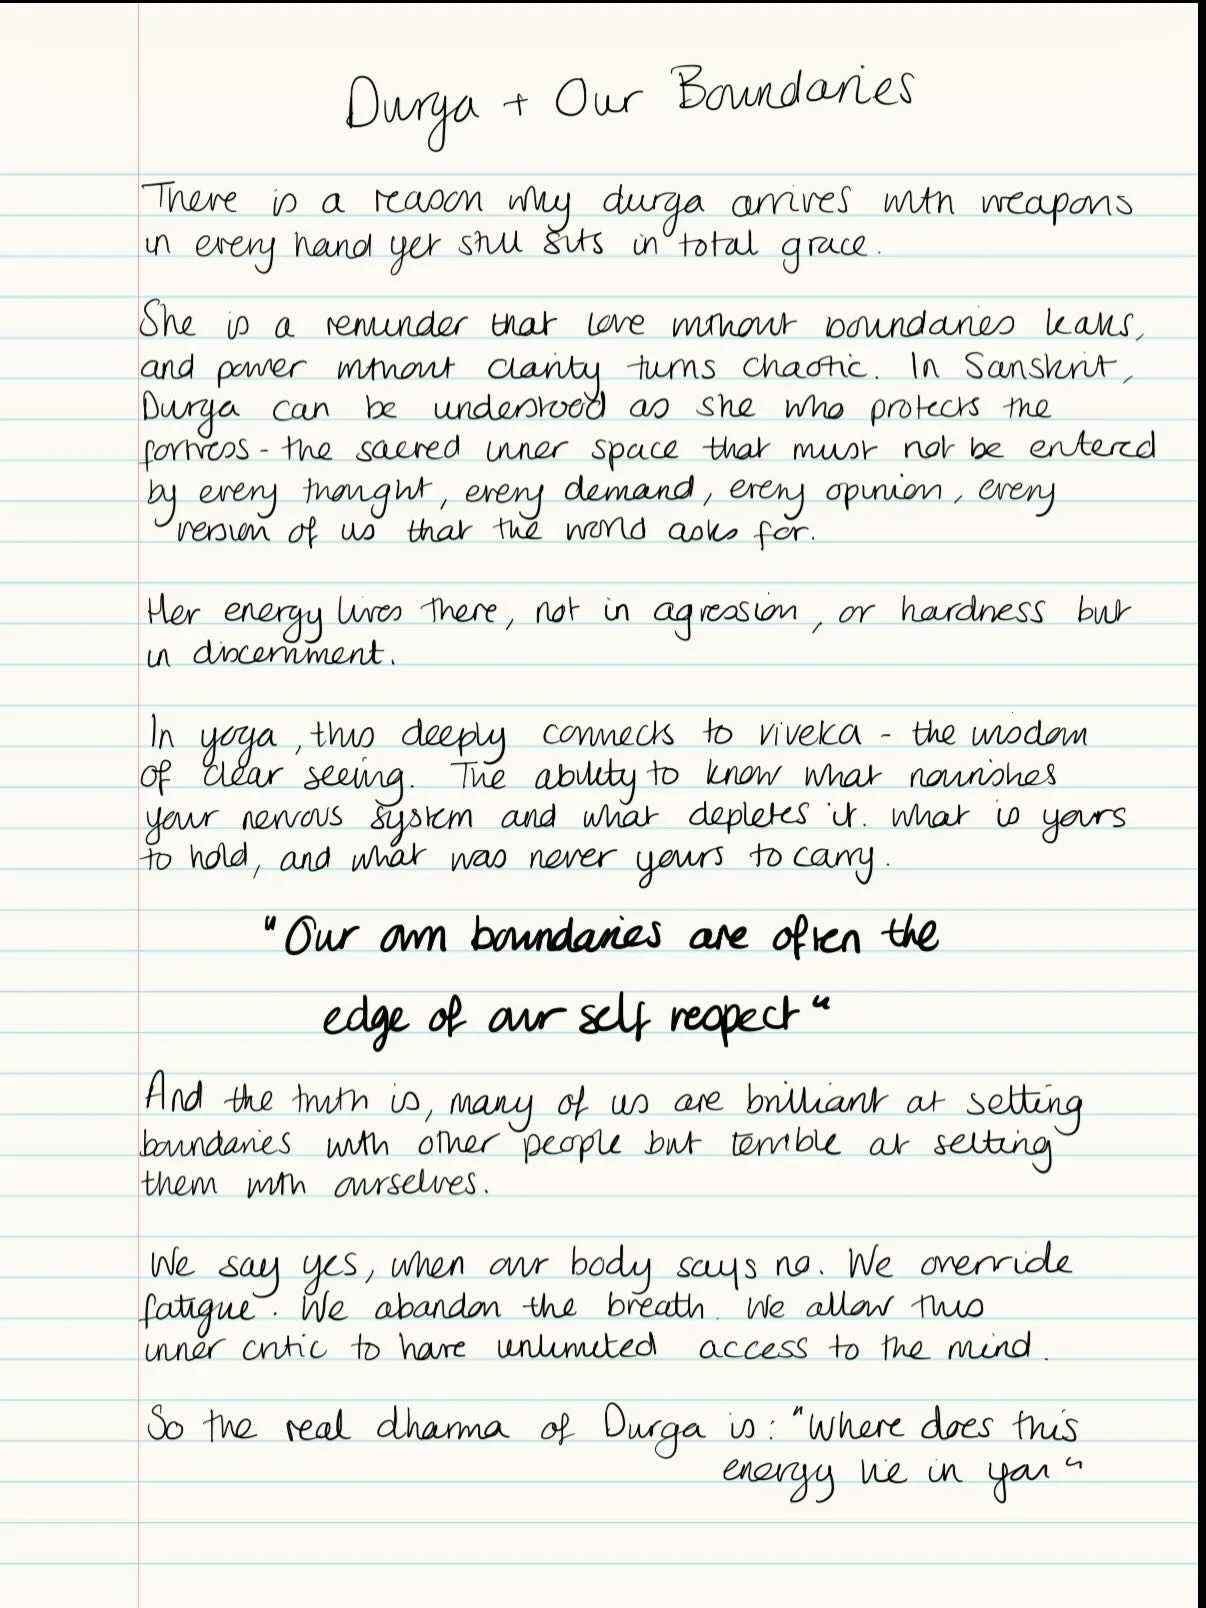 Durga + Our Boundaries
There is a reason why durga arrives with weapons
in every hand yet still sits in total grace.
She is a reminder that love without boundaries leaks,
and power without clarity turns chaotic. In Sanskrit,
Durga can be understood as she who protects the
fortress - the sacred inner space that must not be entered
by every thought, every demand, every opinion, every
version of us that the world asks for.
Her energy lives there, not in agression, or hardness but
in discernment.
In yoga, this deeply connects to viveka - the wisdom
of clear seeing. The ability to know what nourishes
your nervous system and what depletes it. What is yours
to hold, and what was never yours to carry.
"Our own boundaries are often the
edge of our self respect"
And the truth is, many of us are brilliant at setting
boundaries with other people but terrible at setting
them with ourselves.
We say yes, when our body says no. We override
fatigue. We abandon the breath. We allow this
inner critic to have unlimited access to the mind.
So the real dharma of Durga is: "Where does this
energy lie in you"